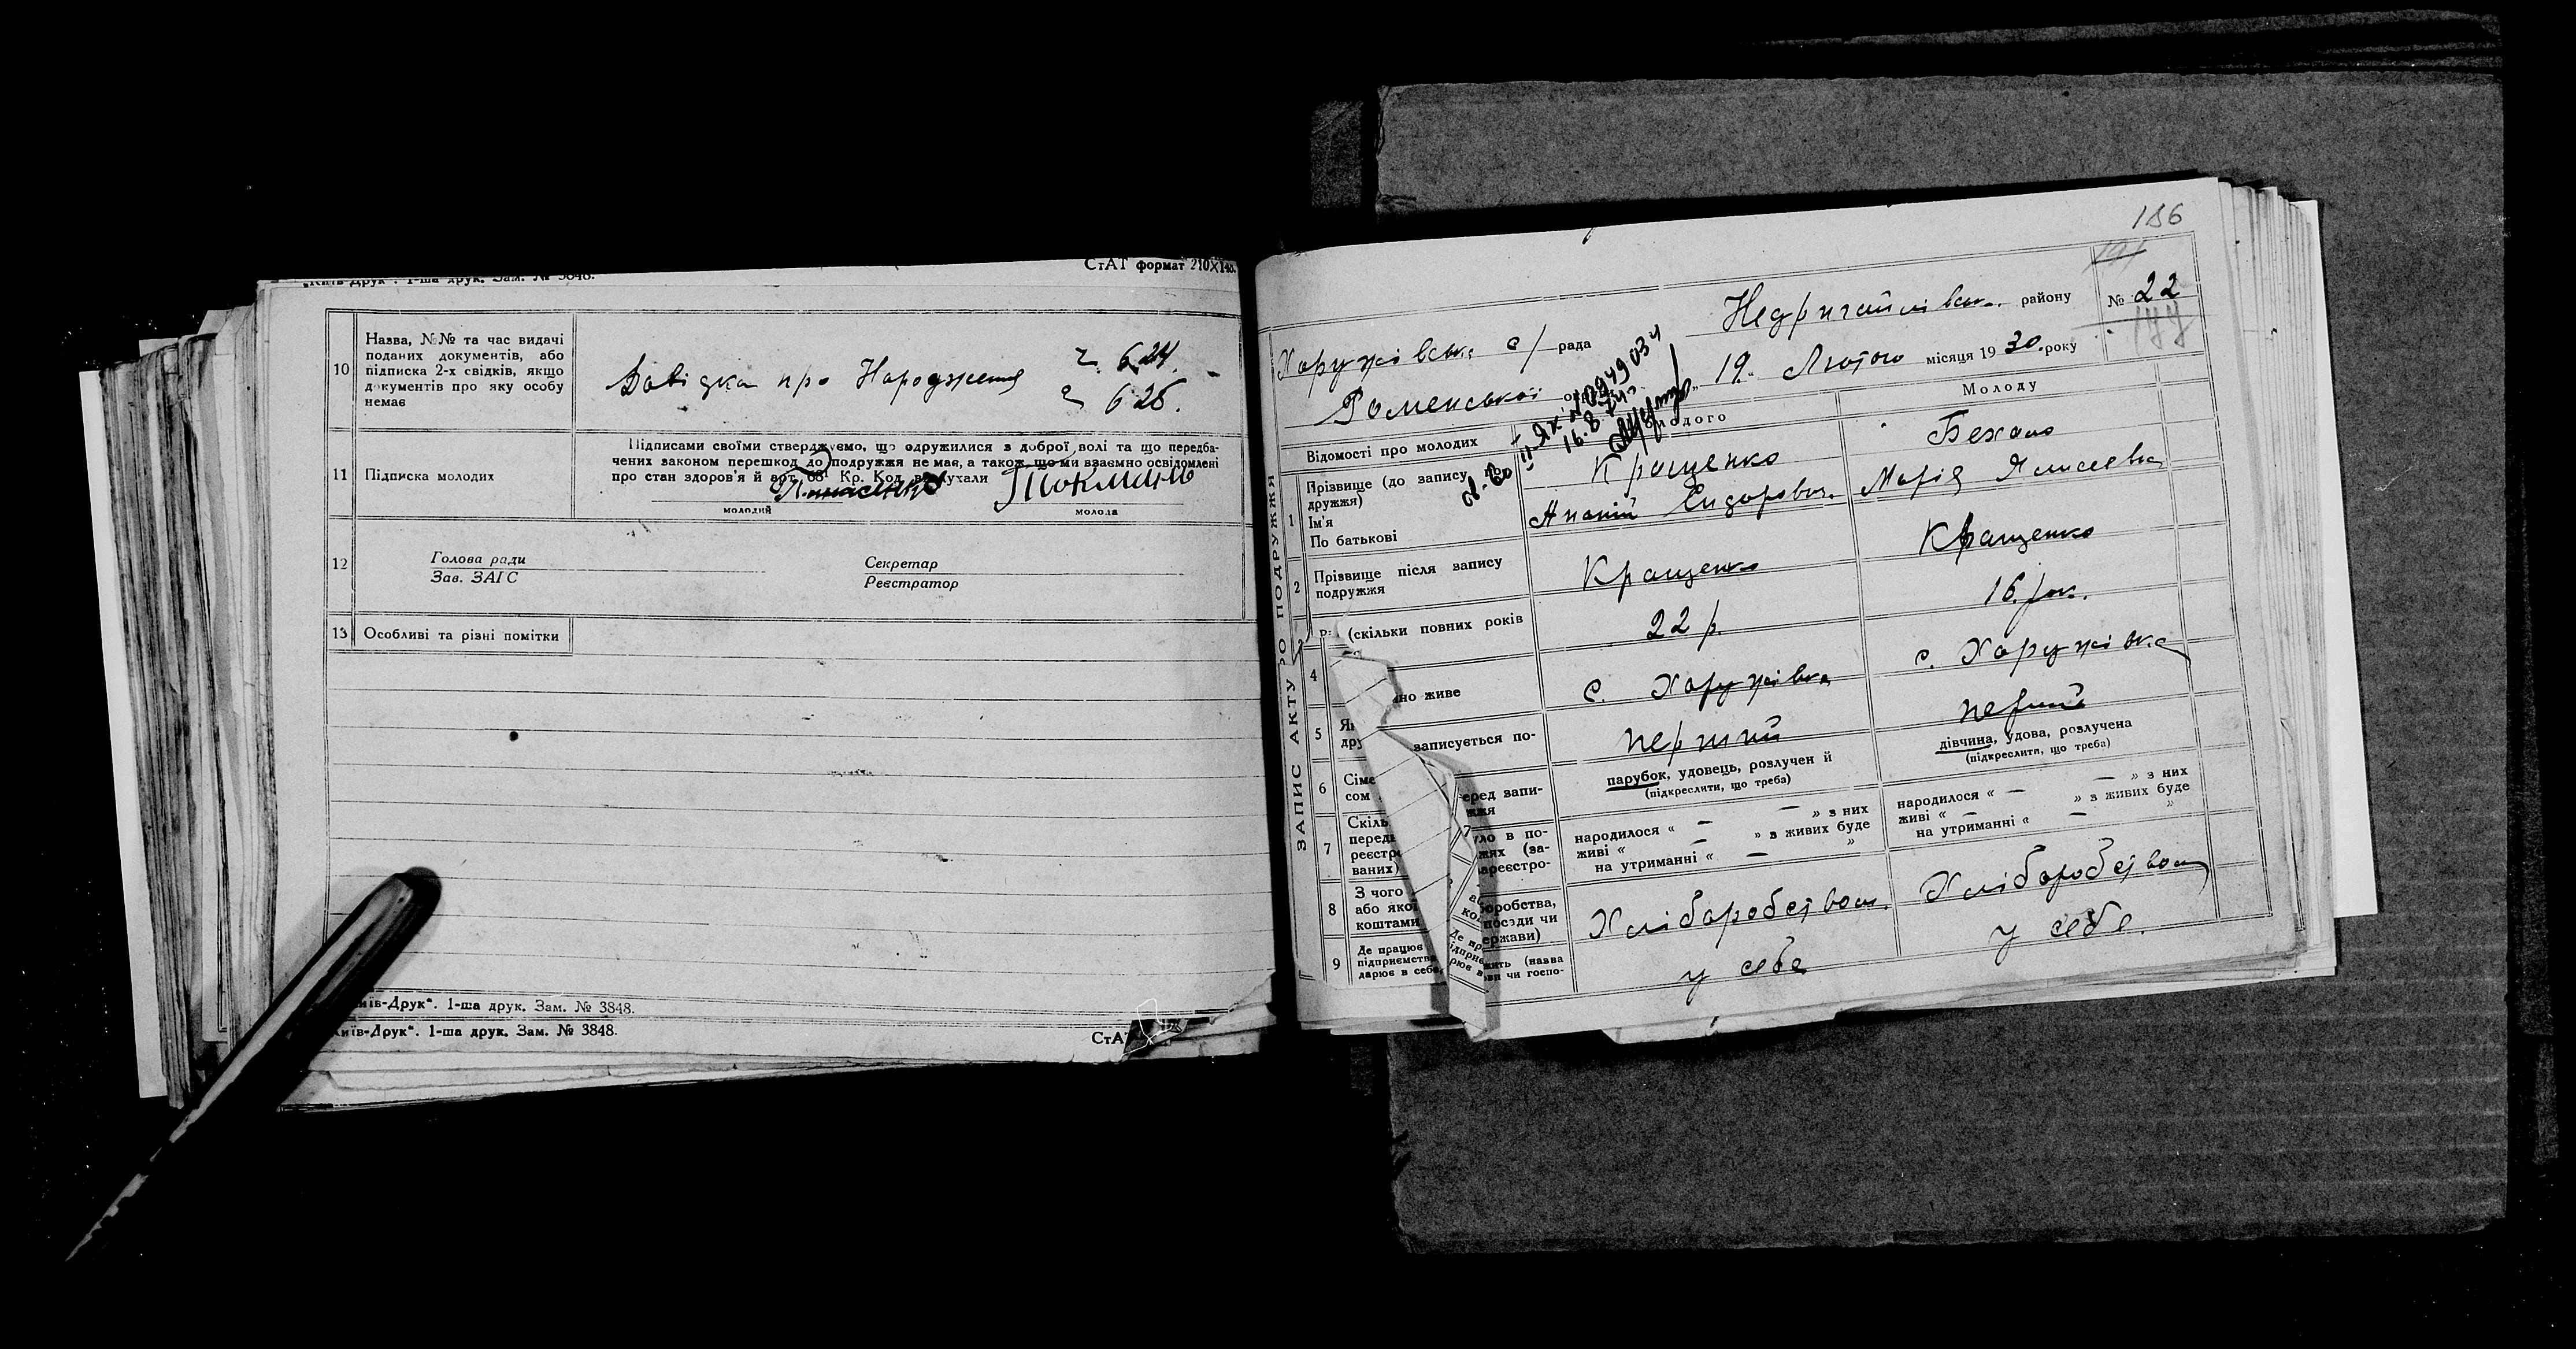 „Київ-Друк“. 1-ша друк. Зам. № 3848.
СтАТ формат 210×148.
10
Назва, №№ та час видачі
поданих документів, або
підписка 2-х свідків, якщо
документів про яку особу
немає
Довідка про Народження
624.
625.
11
Підписка молодих
Підписами своїми стверджуємо, що одружилися з доброї волі та що передба-
чених законом перешкод до подружжя не має, а також, що ми взаємно освідомлені
про стан здоров'я й арт. 68 Кр. Код. вислухали
молодий
молода
12
Голова ради
Зав. ЗАГС
Секретар
Реєстратор
13
Особливі та різні помітки
„Київ-Друк“. 1-ша друк. Зам. № 3848.
„Київ-Друк“. 1-ша друк. Зам. № 3848.
СтА
186
Хоружівська с/ рада Недригайлівськ. району
№ 22
177
Роменської
„19“ Лютого місяця 1930 року
16.8
ЗАПИС АКТУ ПРО ПОДРУЖЖЯ
Відомості про молодих
Молодого
Молоду
1
Прізвище (до запису по-
дружжя)
Ім'я
По батькові
Кращенко
Ананій Сидорович.
Марія
2
Прізвище після запису
подружжя
Кращенко
Кращенко
(скільки повних років
22 р.
16. рок.
4
но живе
с. Хоружівка
с. Хоружівка
5
Як
дру
записується по-
перший
перший
6
Сіме
сом
еред запи-
жжя
парубок, удовець, розлучен й
(підкреслити, що треба)
дівчина, удова, розлучена
(підкреслити, що треба)
7
Скіль
перед
реєстро
ваних)
ло в по-
жях (за-
ареєстро-
народилося « — » з них
живі « — » з живих буде
на утриманні « — »
народилося « — » з них
живі « — » з живих буде
на утриманні « — »
8
З чого
або якої
коштами
оробства,
посади чи
ержави)
Хліборобством.
Хліборобством
9
Де працює
підприємства
дарює в себе
жить (назва
ови чи госпо-
у себе
у себе.